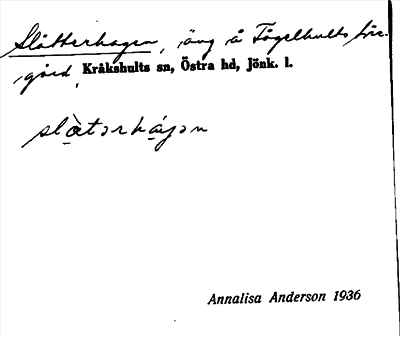 Slåtterhagen, äng å Fågelhults frä-
gård, Kråkshults sn, Östra hd, Jönk. l.
slàtərhágən
Annalisa Anderson 1936